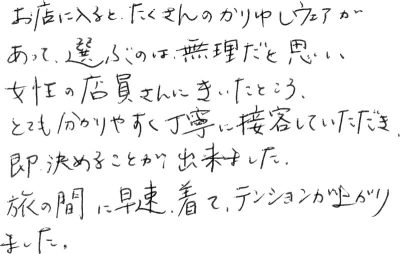 お店に入ると、たくさんのかりゆしウェアが
あって、選ぶのは、無理だと思い、
女性の店員さんにきいたところ、
とても分かりやすく丁寧に接客していただき、
即決めることが出来ました。
旅の間に早速、着て、テンションが上がり
ました。